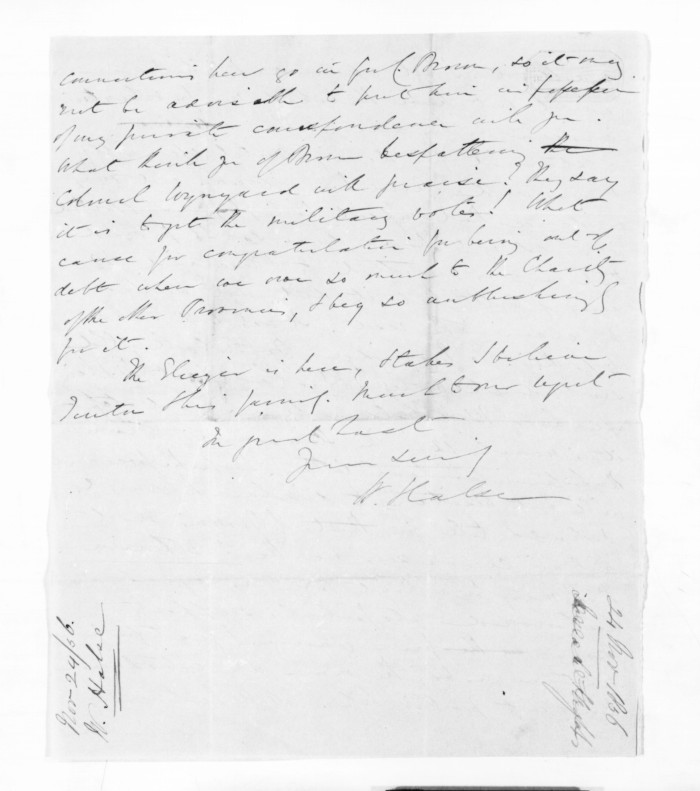 connections here go in for C. Brown, so it may
not be advisable to put him in possession
of my private correspondence with you.
What think you of Brown bespattering the
Colonel Wynyard with praise? They say
it is to get the military votes! What
cause for congratulation for being out of
debt when we owe so much to the Charity
of the other Provinces, & beg so unblushingly
for it.
The is here, & takes I believe
& his family. Much to our regret
In great haste
Yours sincerely
W. Halse
Nov 24/56.
W. Halse
24 Nov 1856